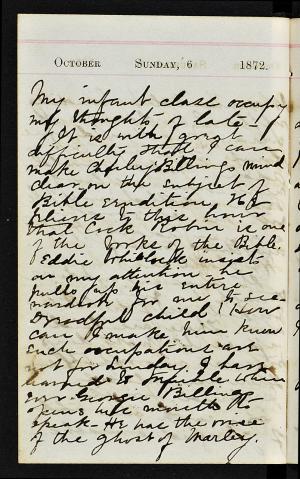 October Sunday, 6 1872.
My infant class occupy
my thoughts of late
It is with great
difficulty that I can
make Charley Billings mind
clear on the subject of
Bible erudition. He
believes to this hour
that Cock Robin is one
of the books of the Bible.
Eddie Whitlock insists
on my attention he
pulls up his entire
wardrobe for me to see
Dreadful child! How
can I make him know
such occupations are
not for Sunday. I have
learned to tremble when
ever Georgie Billings
opens his mouth to
speak - He has the voice
of the ghost of Marley.